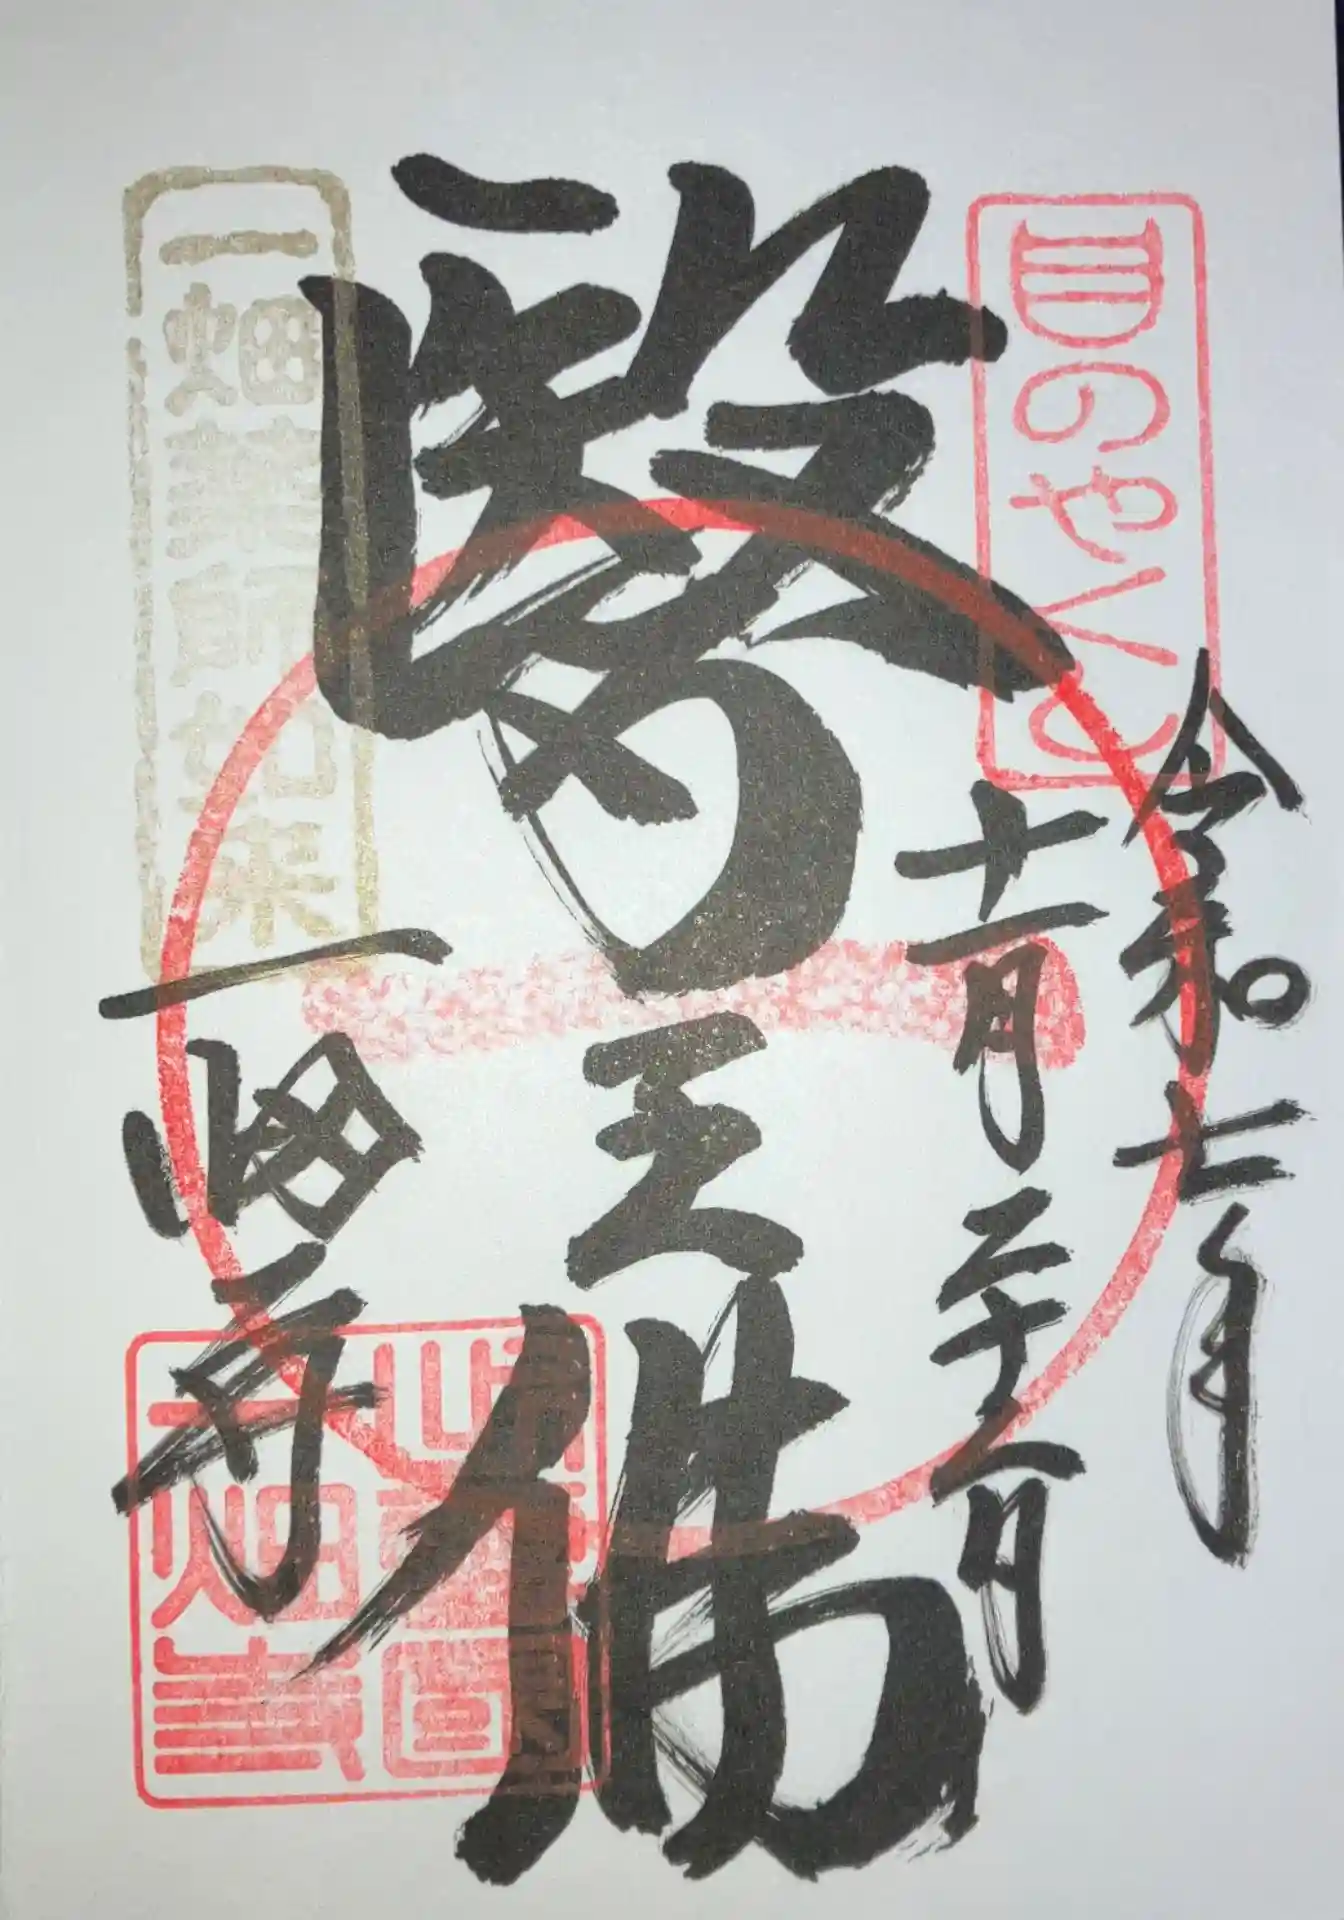 目のやくし
令和七年
十一月二十一日
醫王佛
一畑薬師如来
一畑寺